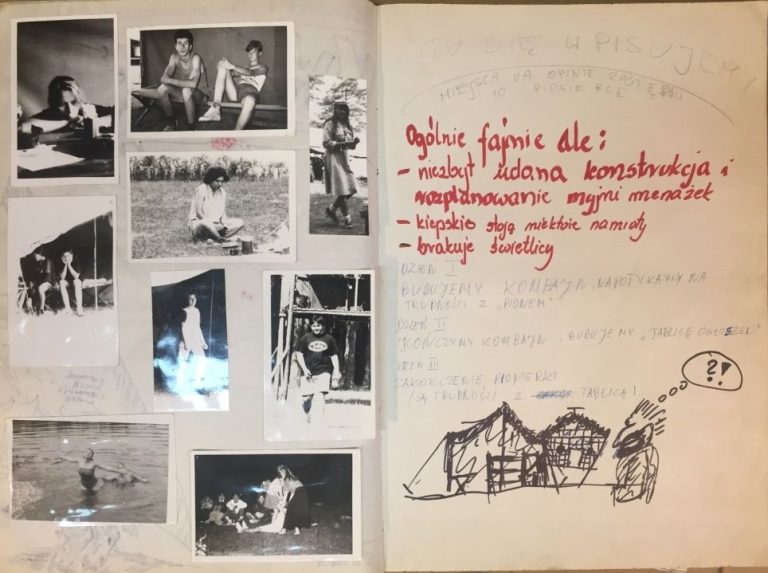 TU SIĘ WPISUJEMY
MIEJSCA NA OPINIE ZASTĘPU
O PIONIERCE
Ogólnie fajnie ale:
- niezbyt udana konstrukcja i
rozplanowanie myjni menażek
- kiepsko stoją niektóre namioty
- brakuje świetlicy
DZIEŃ I
BUDUJEMY KOMBAJN, NAPOTYKAMY NA
TRUDNOŚCI Z „PIONEM”
DZIEŃ II
KOŃCZYMY KOMBAJN, BUDUJEMY „TABLICĘ OGŁOSZEŃ”
DZIEŃ III
ZAKOŃCZENIE PIONIERKI
(SĄ TRUDNOŚCI Z TABLICĄ)
?!